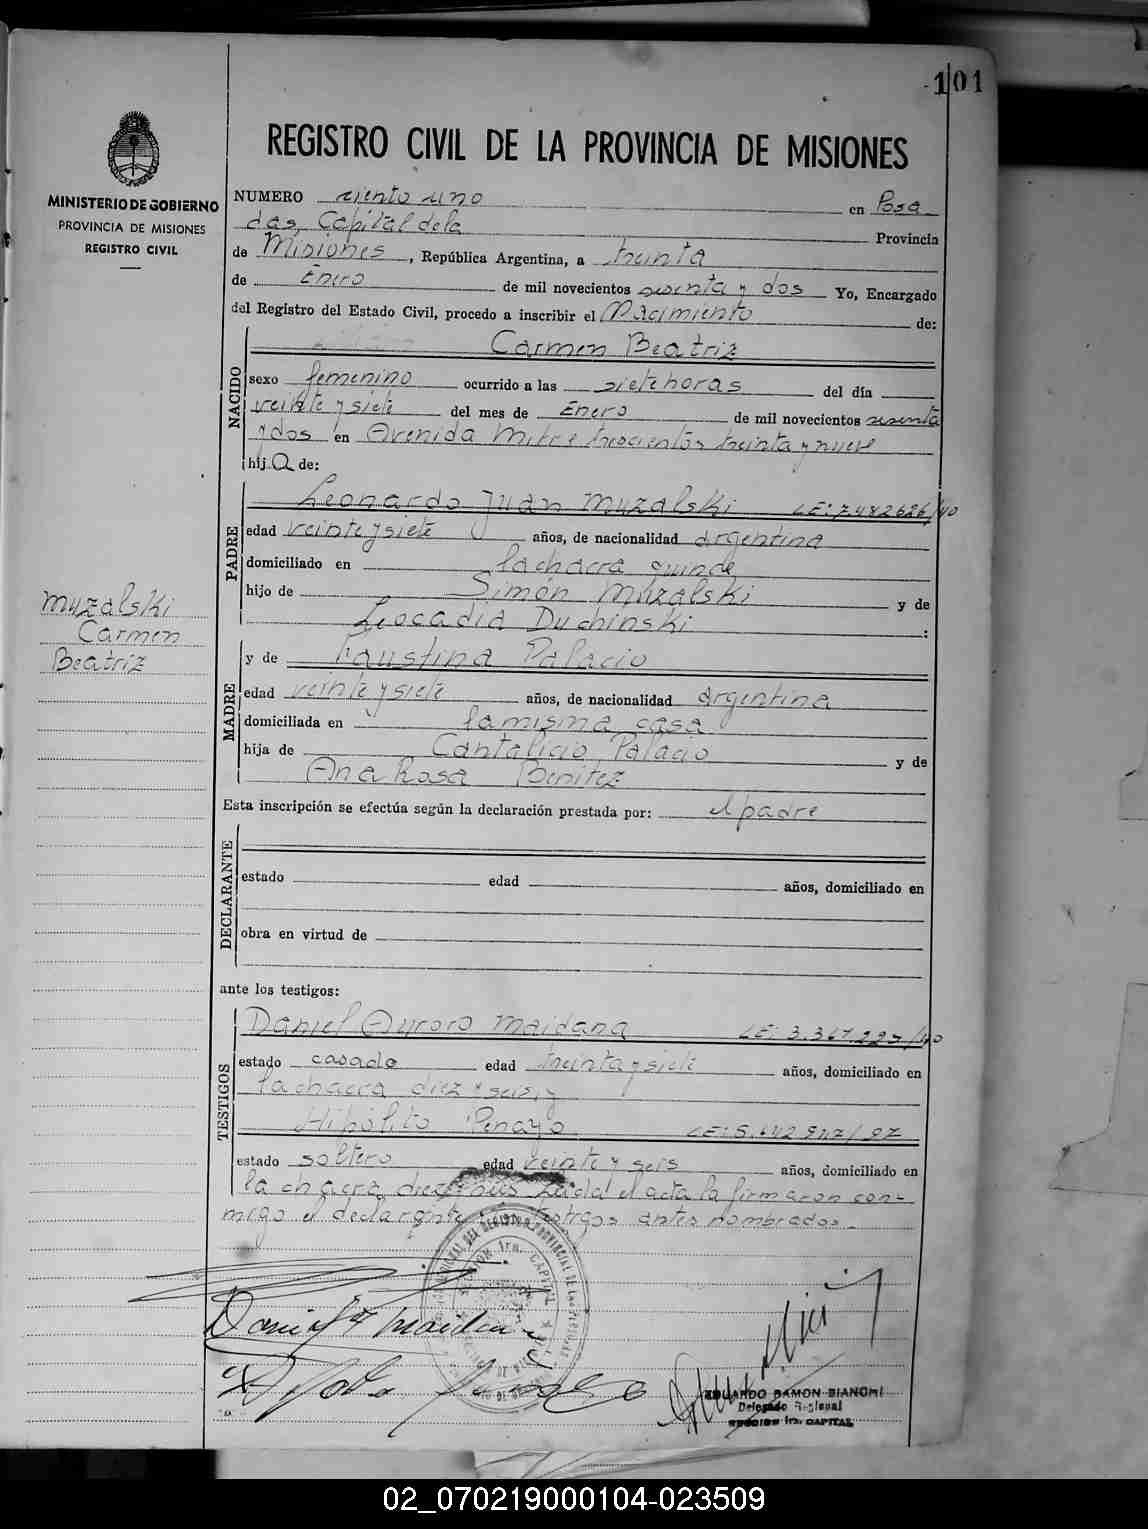 101
REGISTRO CIVIL DE LA PROVINCIA DE MISIONES
MINISTERIO DE GOBIERNO
PROVINCIA DE MISIONES
REGISTRO CIVIL
NUMERO ciento uno en Posa
das, Capital de la Provincia
de Misiones, República Argentina, a treinta
de Enero de mil novecientos sesenta y dos Yo, Encargado
del Registro del Estado Civil, procedo a inscribir el Nacimiento de:
NACIDO
Carmen Beatriz
sexo femenino ocurrido a las siete horas del día
veinte y siete del mes de Enero de mil novecientos sesenta
y dos en Avenida Mitre trescientos treinta y nueve
hija de:
PADRE
Leonardo Juan Muzalski LE: 7.482626/40
edad veinte y siete años, de nacionalidad argentina
domiciliado en la chacra quince
hijo de Simón Muzalski y de
Leocadia Duchinski :
muzalski
Carmen
Beatriz
MADRE
y de Faustina Palacio
edad veinte y siete años, de nacionalidad argentina
domiciliada en la misma casa
hija de Cantalicio Palacio y de
Ana Rosa Benitez
Esta inscripción se efectúa según la declaración prestada por: el padre
DECLARANTE
estado edad años, domiciliado en
obra en virtud de
ante los testigos:
TESTIGOS
Daniel Auroro Maidana LE: 3.367.
estado casado edad treinta y siete años, domiciliado en
la chacra diez y seis, y
Hipólito Penayo LE: 5.
estado soltero edad veinte y seis años, domiciliado en
la chacra diez y seis Leida el acta la firmaron con-
migo el declarante testigos antes nombrados.-
Daniel A Maidana
EDUARDO RAMON BIANCHI
Delegado Regional
SECCION 1ra. CAPITAL
02_070219000104-023509